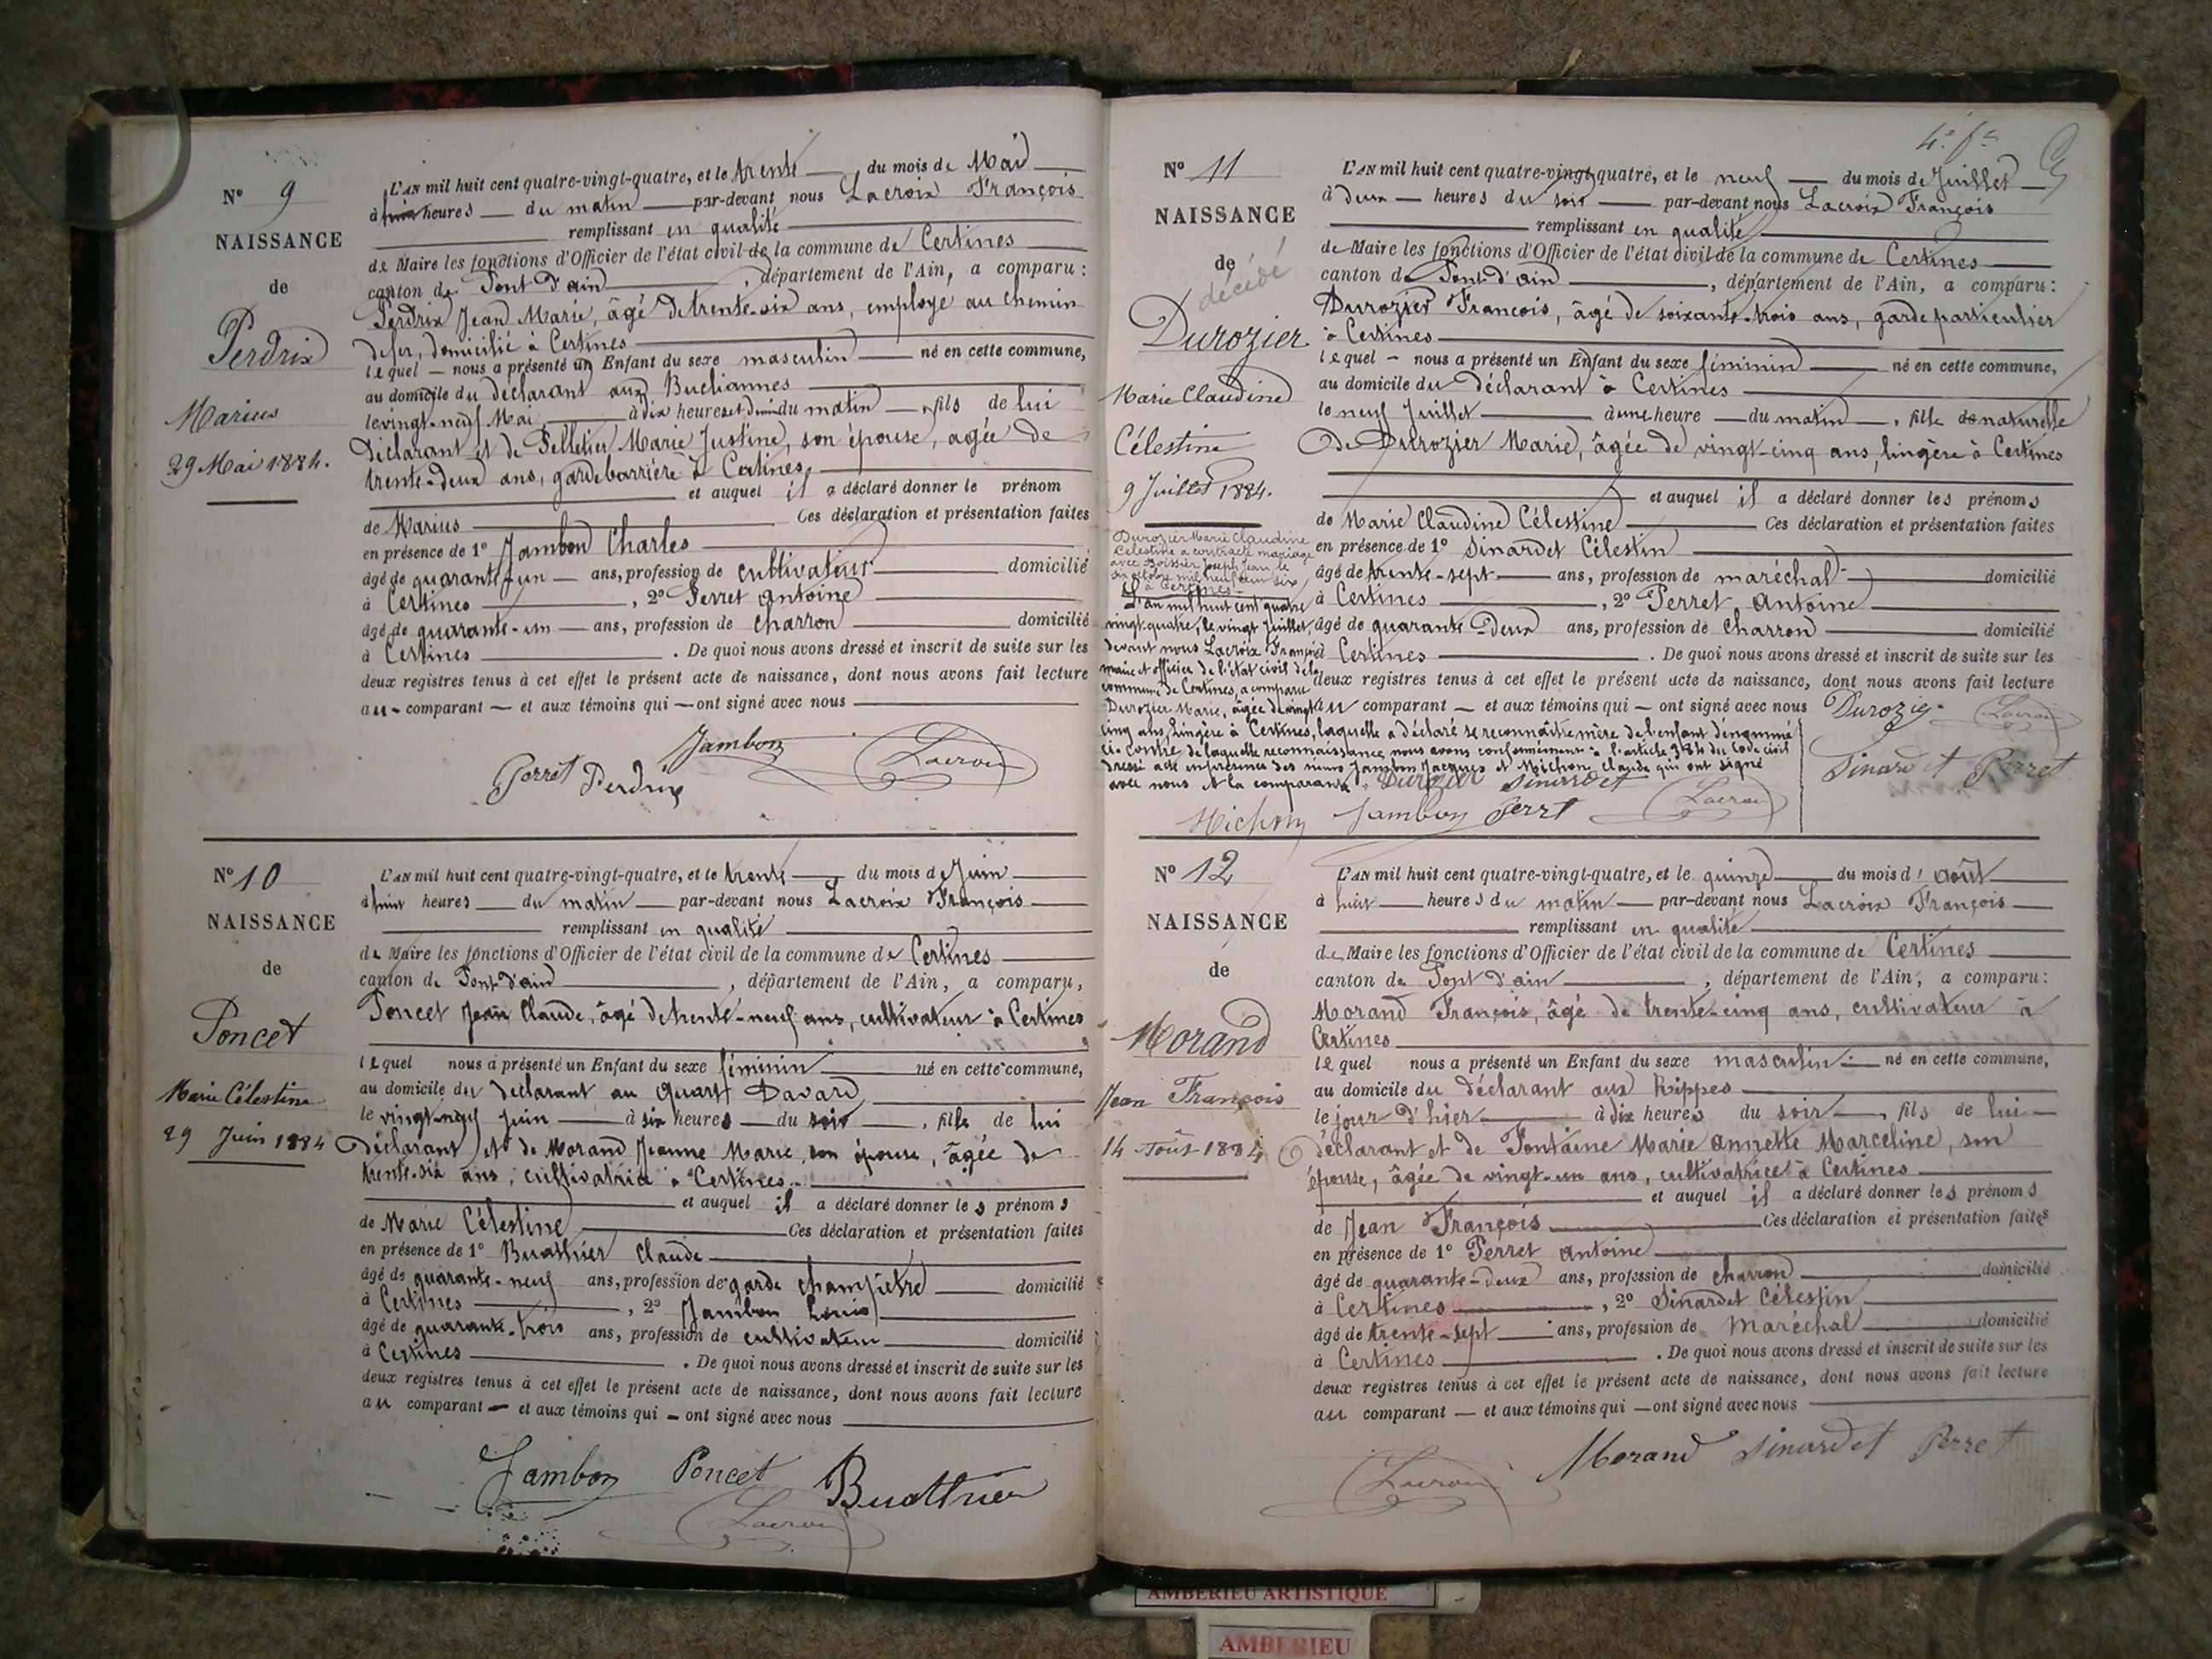 Nº 9
NAISSANCE
de
Perdrix
Marius
29 Mai 1884.
L'AN mil huit cent quatre-vingt-quatre, et le trente du mois de Mai
à huit heures du matin par-devant nous Lacroix François
remplissant en qualité
de Maire les fonctions d'Officier de l'état civil de la commune de Certines
canton de Pont d'ain, département de l'Ain, a comparu :
Perdrix Jean Marie, âgé de trente-six ans, employé au chemin
de fer, domicilié à Certines
lequel nous a présenté un Enfant du sexe masculin né en cette commune,
au domicile du déclarant aux Bucliannes
le vingt-neuf Mai à dix heures et demi du matin, fils de lui
Déclarant et de Pelletier Marie Justine, son épouse, agée de
trente-deux ans, garde barrière à Certines,
et auquel il a déclaré donner le prénom
de Marius Ces déclaration et présentation faites
en présence de 1º Jambon Charles
âgé de quarante-un ans, profession de cultivateur domicilié
à Certines, 2º Perret Antoine
âgé de quarante-un ans, profession de charron domicilié
à Certines. De quoi nous avons dressé et inscrit de suite sur les
deux registres tenus à cet effet le présent acte de naissance, dont nous avons fait lecture
au comparant et aux témoins qui ont signé avec nous
Jambon Lacroix
Perret Perdrix
Nº 10
NAISSANCE
de
Poncet
Marie Célestine
29 Juin 1884
L'AN mil huit cent quatre-vingt-quatre, et le trente du mois de Juin
à huit heures du matin par-devant nous Lacroix François
remplissant en qualité
de Maire les fonctions d'Officier de l'état civil de la commune de Certines
canton de Pont-d'ain, département de l'Ain, a comparu,
Poncet Jean Claude, âgé de trente-neuf ans, cultivateur à Certines
lequel nous a présenté un Enfant du sexe féminin né en cette commune,
au domicile du déclarant au quart Davard
le vingt-neuf Juin à six heures du soir, fille de lui
Déclarant et de Morand Jeanne Marie, son épouse, âgée de
trente-six ans, cultivatrice à Certines.
et auquel il a déclaré donner les prénoms
de Marie Célestine Ces déclaration et présentation faites
en présence de 1º Buathier Claude
âgé de quarante-neuf ans, profession de garde champêtre domicilié
à Certines, 2º Jambon Louis
âgé de quarante-trois ans, profession de cultivateur domicilié
à Certines. De quoi nous avons dressé et inscrit de suite sur les
deux registres tenus à cet effet le présent acte de naissance, dont nous avons fait lecture
au comparant et aux témoins qui ont signé avec nous
Jambon Poncet Buathier
Lacroix
Nº 11
NAISSANCE
de
décédé
Durozier
Marie Claudine
Célestine
9 Juillet 1884.
L'AN mil huit cent quatre-vingt-quatre, et le neuf du mois de Juillet
à deux heures du soir par-devant nous Lacroix François
remplissant en qualité
de Maire les fonctions d'Officier de l'état civil de la commune de Certines
canton de Pont d'ain, département de l'Ain, a comparu :
Durozier François, âgé de soixante-trois ans, garde particulier
à Certines
lequel nous a présenté un Enfant du sexe féminin né en cette commune,
au domicile du déclarant à Certines
le neuf Juillet à une heure du matin, fille naturelle
De Durozier Marie, âgée de vingt-cinq ans, lingère à Certines
et auquel il a déclaré donner les prénoms
de Marie Claudine Célestine Ces déclaration et présentation faites
en présence de 1º Sinardet Célestin
âgé de trente-sept ans, profession de maréchal domicilié
à Certines, 2º Perret Antoine
âgé de quarante-Deux ans, profession de charron domicilié
à Certines. De quoi nous avons dressé et inscrit de suite sur les
deux registres tenus à cet effet le présent acte de naissance, dont nous avons fait lecture
au comparant et aux témoins qui ont signé avec nous Durozier Lacroix
Sinardet Perret
Durozier Marie Claudine
Célestine a contracté mariage
avec Boissier Joseph Jean, le
six octobre mil neuf cent six,
à Certines.
L'an mil huit cent quatre
vingt-quatre, le vingt Juillet,
devant nous Lacroix François
maire et officier de l'état civil de la
commune de Certines, a comparu
Durozier Marie, âgée de vingt
cinq ans, Lingère à Certines, laquelle a déclaré se reconnaître mère de l'enfant dénommé
ci-contre de laquelle reconnaissance nous avons conformément à l'article 334 du Code civil
dressé acte en présence des sieurs Jambon Jacques et Michon Claude qui ont signé
avec nous et la comparante. Durozier Sinardet
Michon Jambon Perret Lacroix
Nº 12
NAISSANCE
de
Morand
Jean François
14 Août 1884
L'AN mil huit cent quatre-vingt-quatre, et le quinze du mois d'août
à huit heures du matin par-devant nous Lacroix François
remplissant en qualité
de Maire les fonctions d'Officier de l'état civil de la commune de Certines
canton de Pont d'ain, département de l'Ain, a comparu :
Morand François, âgé de trente-cinq ans, cultivateur à
Certines
lequel nous a présenté un Enfant du sexe masculin né en cette commune,
au domicile du déclarant aux Rippes
le jour d'hier à dix heures du soir, fils de lui
déclarant et de Fontaine Marie annette Marceline, son
épouse, âgée de vingt-un ans, cultivatrice à Certines
et auquel il a déclaré donner les prénoms
de Jean François Ces déclaration et présentation faites
en présence de 1º Perret Antoine
âgé de quarante-deux ans, profession de charron domicilié
à Certines, 2º Sinardet Célestin
âgé de trente-sept ans, profession de Maréchal domicilié
à Certines. De quoi nous avons dressé et inscrit de suite sur les
deux registres tenus à cet effet le présent acte de naissance, dont nous avons fait lecture
au comparant et aux témoins qui ont signé avec nous
Lacroix Morand Sinardet Perret
AMBERIEU ARTISTIQUE
AMBERIEU